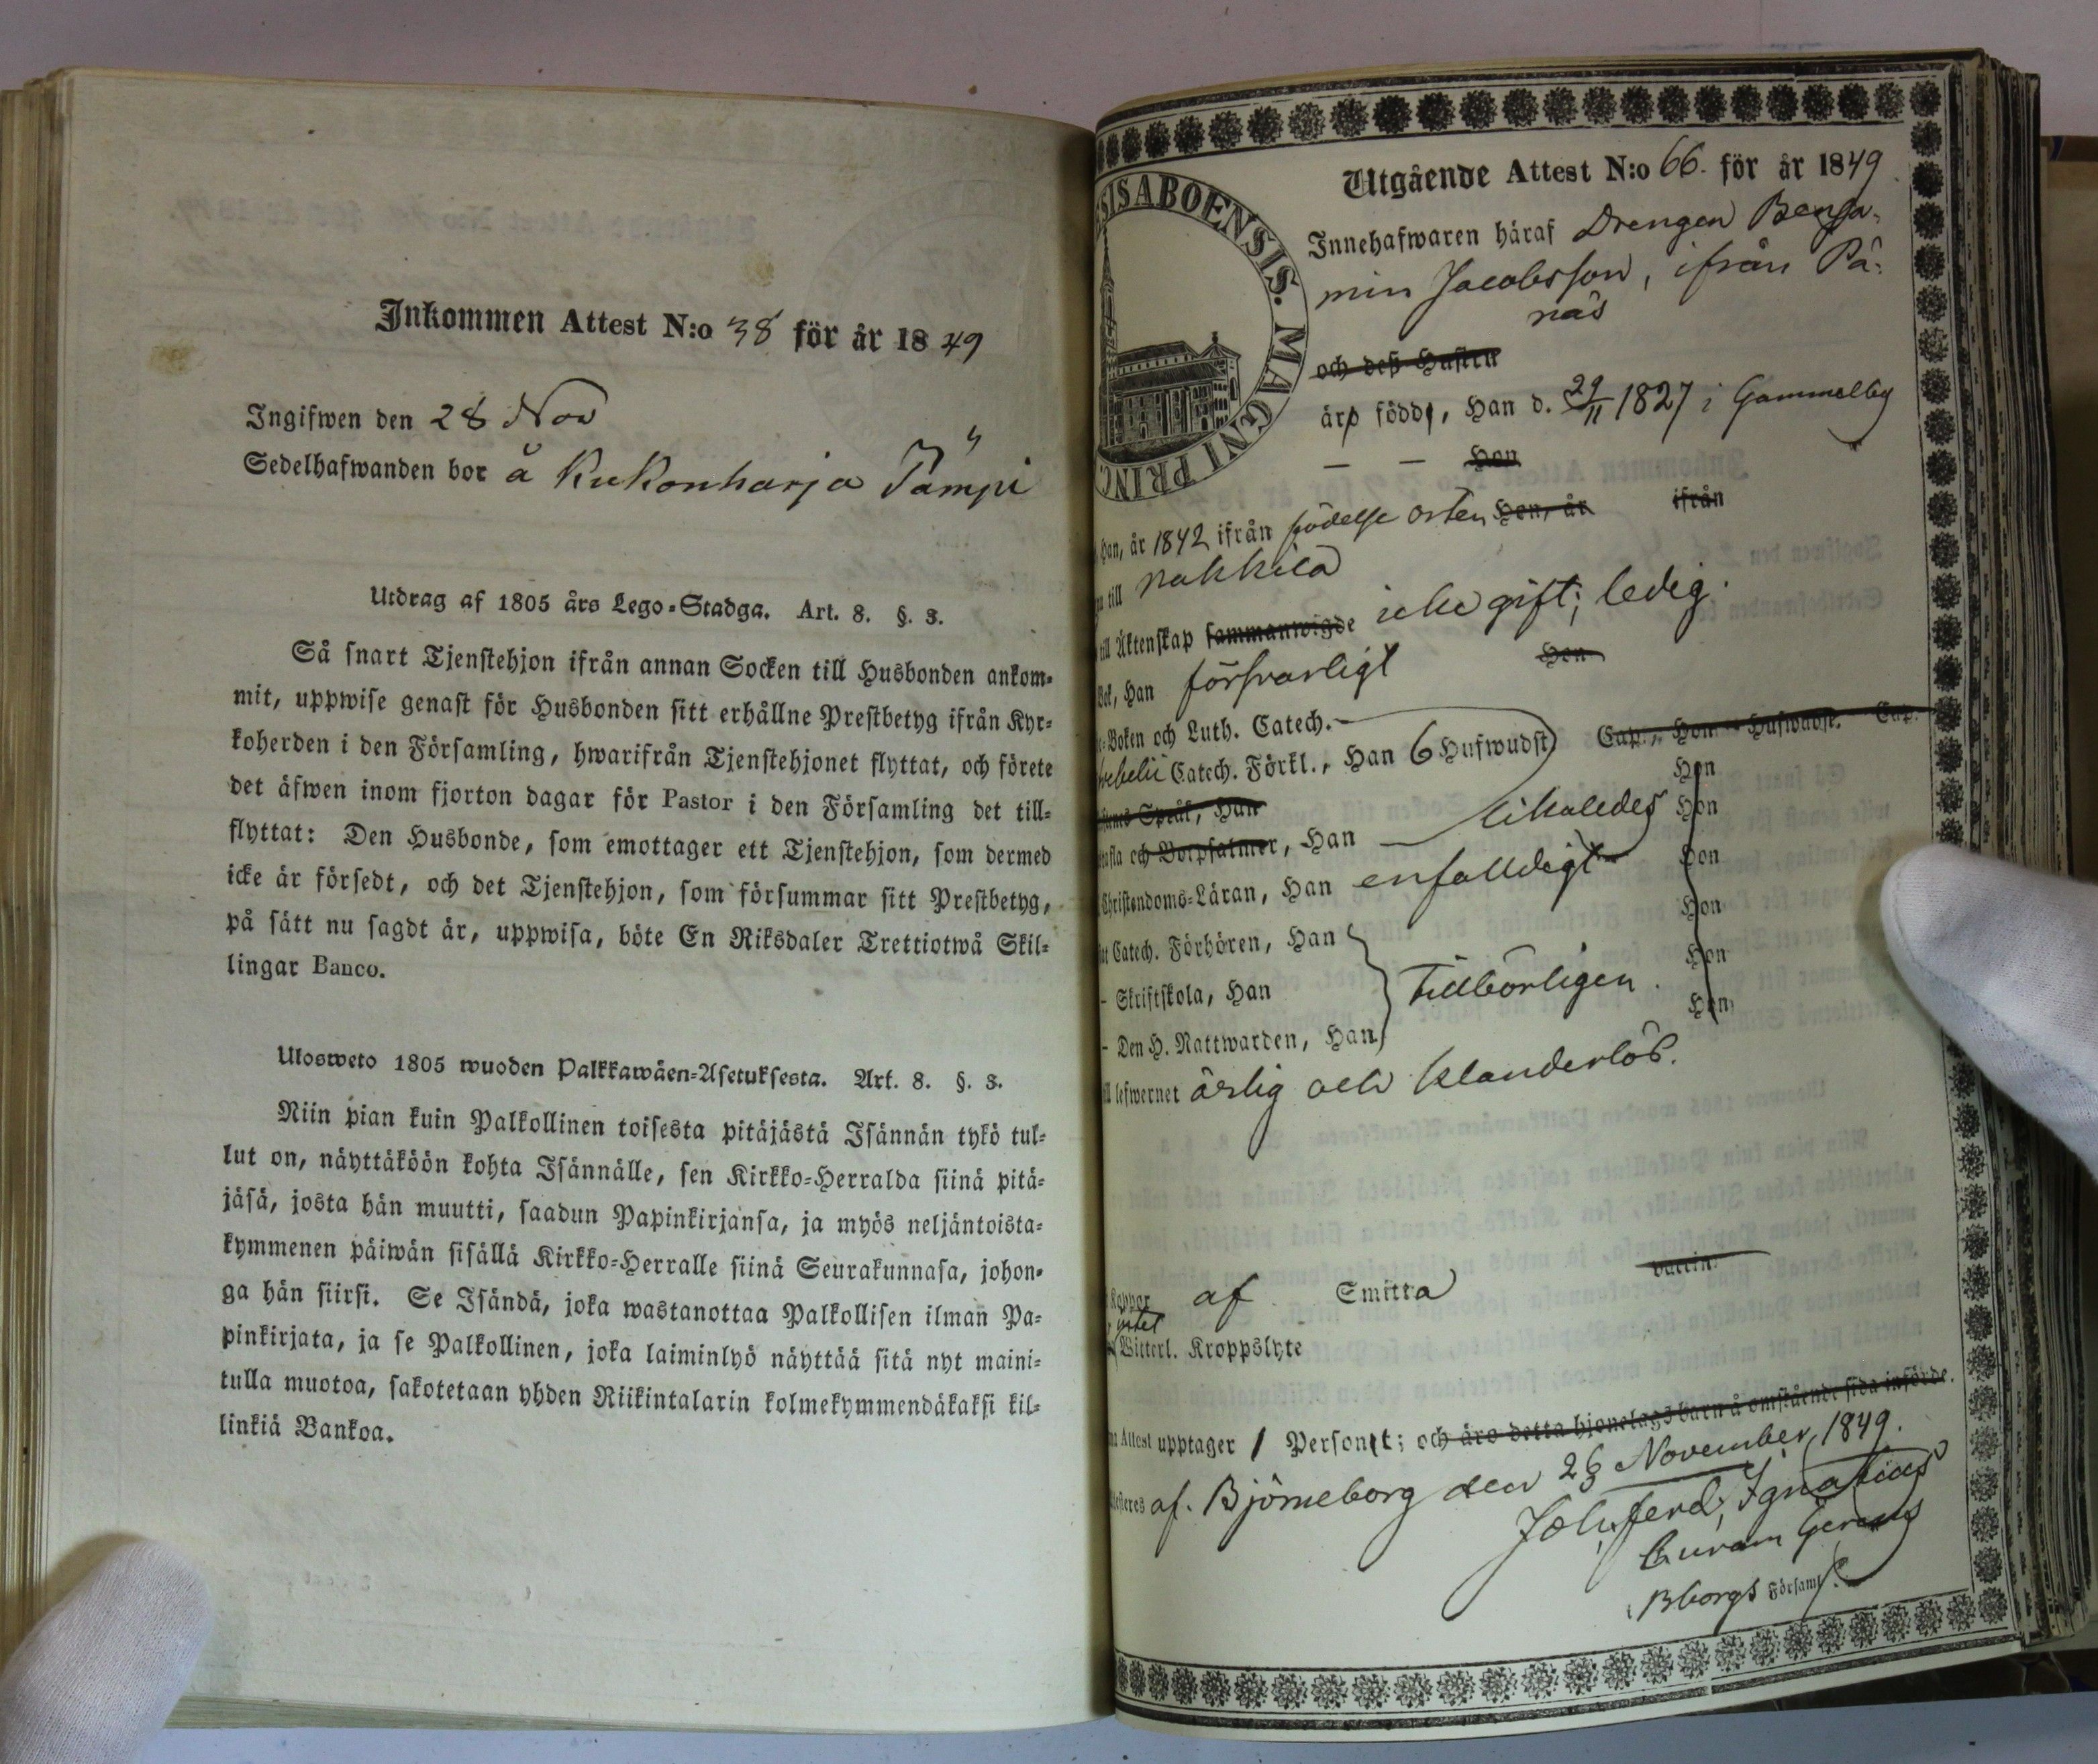 Inkommen Attest N:o 38 för år 1849
Ingifwen den 28 Nov
Sedelhafwanden bor å Kukonharja Tämpi
Utdrag af 1805 års Lego-Stadga. Art. 8. §. 3.
Så snart Tjenstehjon ifrån annan Socken till Husbonden ankom-
mit, uppwise genast för Husbonden sitt erhållne Prestbetyg ifrån Kyr-
koherden i den Församling, hwarifrån Tjenstehjonet flyttat, och förete
det äfwen inom fjorton dagar för Pastor i den Församling det till-
flyttat: Den Husbonde, som emottager ett Tjenstehjon, som dermed
icke är försedt, och det Tjenstehjon, som försummar sitt Prestbetyg,
på sätt nu sagdt är, uppwisa, böte En Riksdaler Trettiotwå Skil-
lingar Banco.
Ulosweto 1805 wuoden Palkkawäen-Asetuksesta. Art. 8. §. 3.
Niin pian kuin Palkollinen toisesta pitäjästä Isännän tykö tul-
lut on, näyttäköön kohta Isännälle, sen Kirkko-Herralda siinä pitä-
jäsä, josta hän muutti, saadun Papinkirjansa, ja myös neljäntoista-
kymmenen päiwän sisällä Kirkko-Herralle siinä Seurakunnasa, johon-
ga hän siirsi. Se Isändä, joka wastanottaa Palkollisen ilman Pa-
pinkirjata, ja se Palkollinen, joka laiminlyö näyttää sitä nyt maini-
tulla muotoa, sakotetaan yhden Riikintalarin kolmekymmendäkaksi kil-
linkiä Bankoa.
SISABOENSIS. MAGNI PRINC
Utgående Attest N:o 66. för år 1849
Innehafwaren häraf Drengen Benja-
min Jacobsson, ifrån På-
näs
och deß Hustru
äro födde, Han d. 29/11 1827 i Gammelby
Hon
Han, år 1842 ifrån födelse orten Hon, år ifrån
till Nakkila
till Äktenskap sammanwigde icke gift; ledig.
Bok, Han försvarligt Hon
Boken och Luth. Catech.
Catech. Förkl., Han 6 Hufwudst Cap., Hon Hufwudst. Cap.
Språk, Han Hon
och Botpsalmer, Han likaledes Hon
Christendoms-Läran, Han enfalldigt Hon
Catech. Förhören, Han Hon
- Skriftskola, Han Tillbörligen. Hon
- Den H. Nattwarden, Han Hon
lefwernet ärlig och klanderlös.
Koppor af Smitta vaccin.
Witterl. Kroppslyte
Attest upptager 1 Person; och äro detta hjonelags barn å omstående sida införde.
af Björneborg den 26 November 1849.
Joh. Ferd. Ignatius
Curam Gerens
i Bborgs Församl.